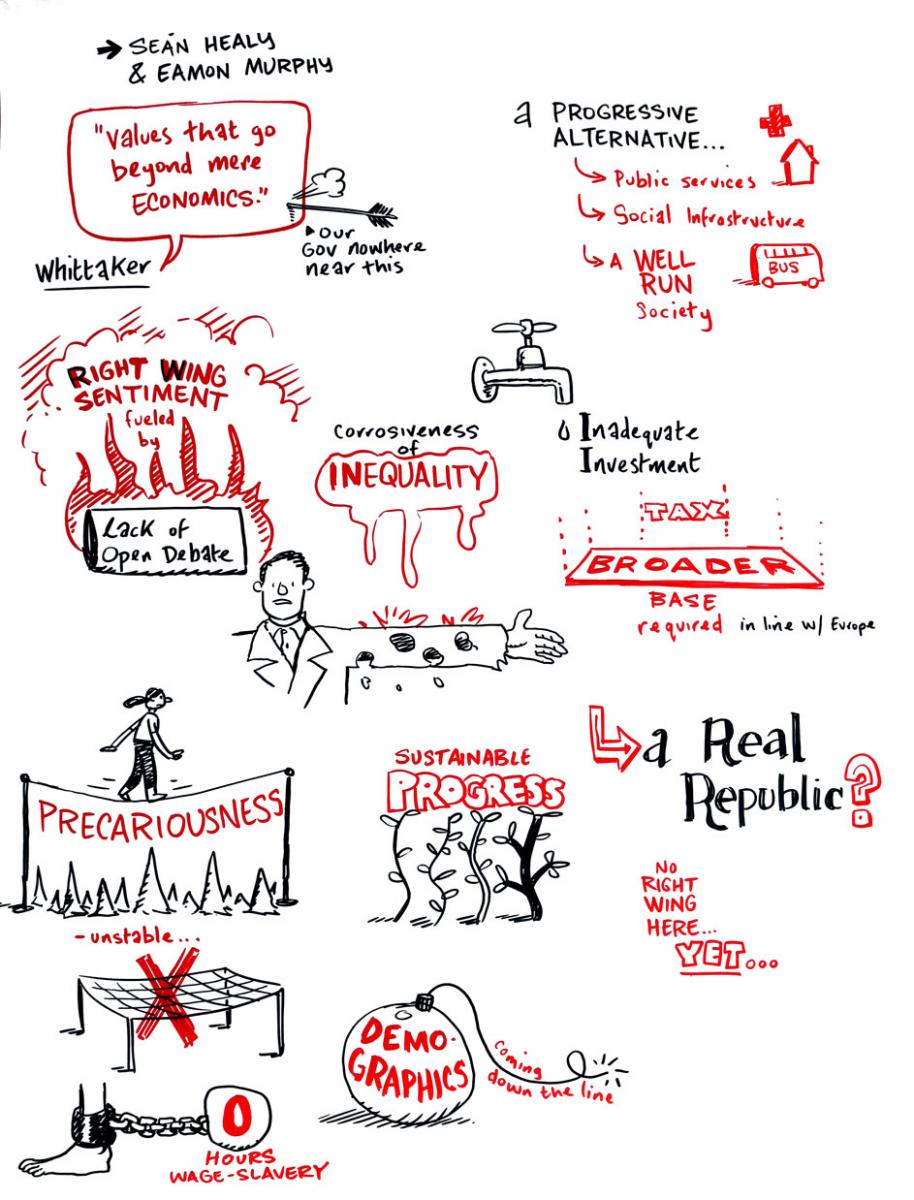 → SEÁN HEALY
& EAMON MURPHY
"Values that go
beyond mere
ECONOMICS."
Whittaker
our
Gov nowhere
near this
a PROGRESSIVE
ALTERNATIVE...
Public services
Social Infrastructure
A WELL
RUN
Society
BUS
RIGHT WING
SENTIMENT
fueled
by
Lack of
Open Debate
Corrosiveness
of
INEQUALITY
Inadequate
Investment
TAX
BROADER
BASE
required in line w/ Europe
PRECARIOUSNESS
- unstable...
SUSTAINABLE
PROGRESS
a Real
Republic?
NO
RIGHT
WING
HERE...
YET...
DEMO-
GRAPHICS
coming
down the line
0
HOURS
WAGE-SLAVERY